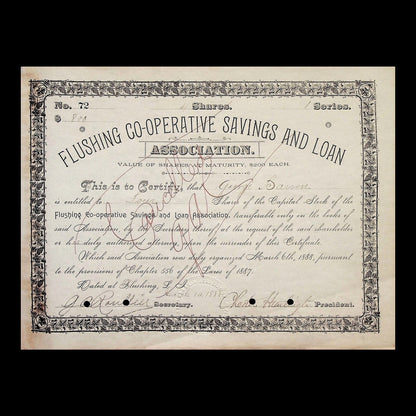 No. 72 4 Shares. 1 Series.
$ 800
FLUSHING CO-OPERATIVE SAVINGS AND LOAN
ASSOCIATION.
VALUE OF SHARES AT MATURITY, $200 EACH.
This is to Certify, that
is entitled to Four Shares of the Capital Stock of the
Flushing Co-operative Savings and Loan Association, transferable only on the books of
said Association by the Secretary thereof at the request of the said shareholder
or duly authorized attorney upon the surrender of this Certificate.
Which said Association was duly organized March 6th, 1888, pursuant
to the provisions of Chapter 556 of the Laws of 1887.
Dated at Flushing, L. I.
Secretary. President.
Cancelled